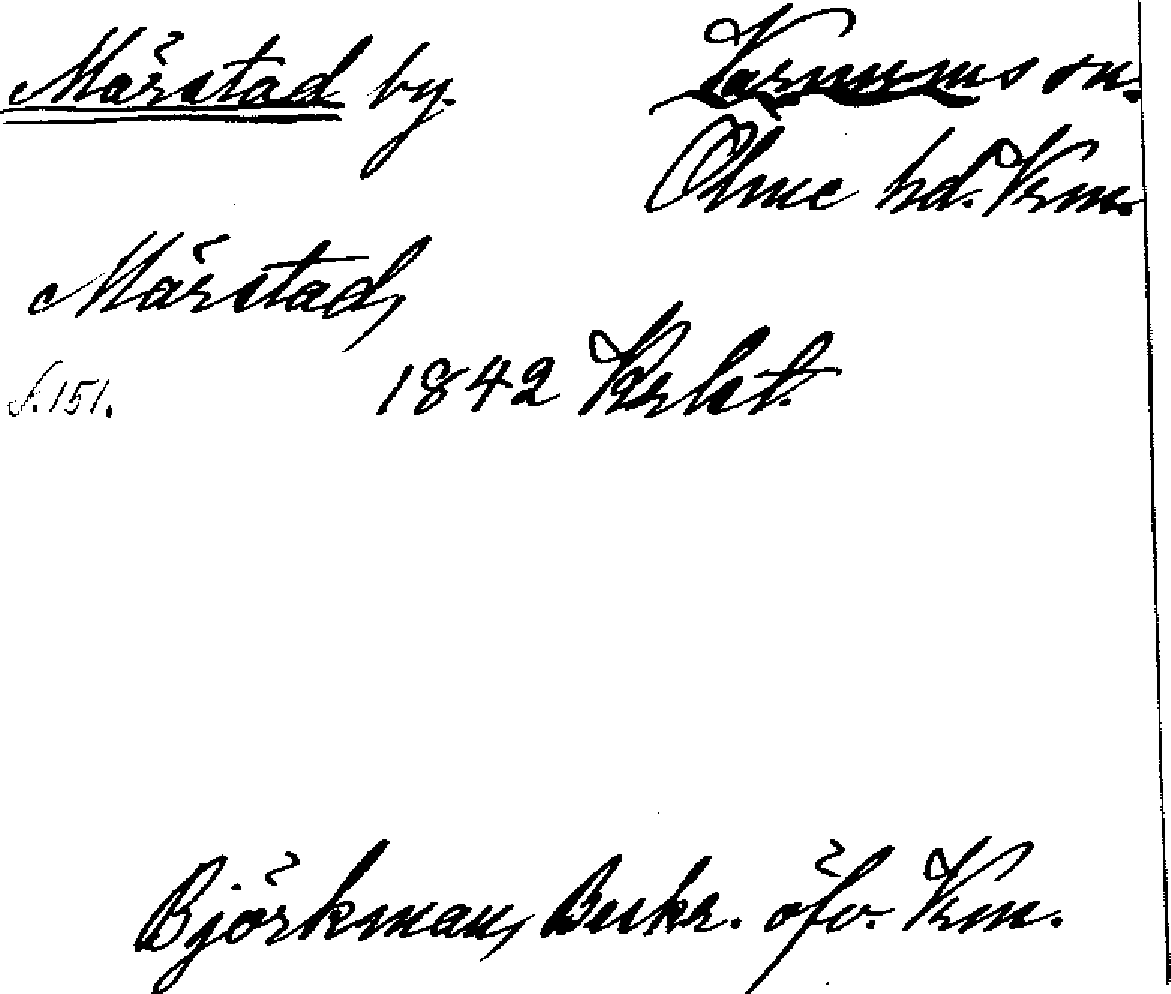 Märstad by. Varnums sn.
Ölme hd. Vrm.
Märstad,
S. 151. 1842 Krlst.
Björkman, Beskr. öfv. Vrm.